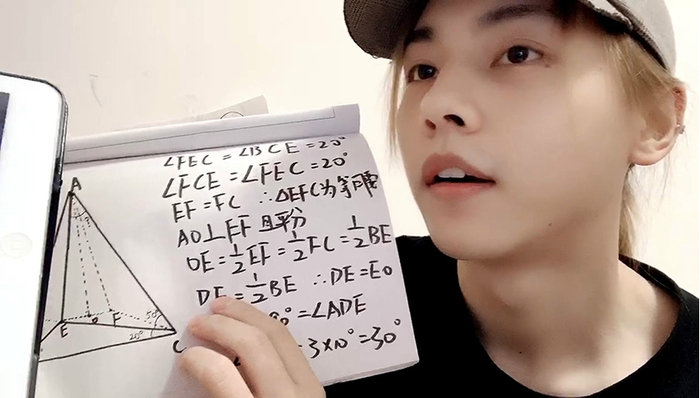 ∠FEC = ∠BCE = 20°
∠FCE = ∠FEC = 20°
EF = FC ∴△EFC为等腰
AO⊥EF 且平分
OE = 1/2 EF = 1/2 FC = 1/2 BE
DE = 1/2 BE ∴ DE = EO
0° = ∠ADE
3×10° = 30°
A
E
F
50°
20°
C